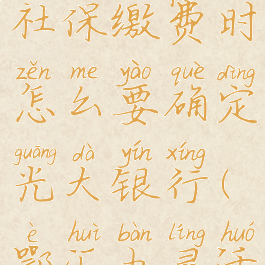 社保缴费时
zěn me yào què dìng
怎么要确定
guāng dà yín xíng
光大银行(
è huì bàn líng huó
鄂汇办灵活